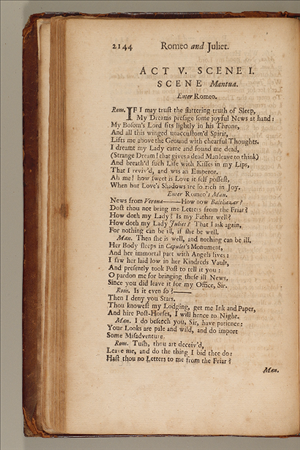 2144 Romeo and Juliet.
ACT V. SCENE I.
SCENE Mantua.
Enter Romeo.
Rom. IF I may trust the flattering truth of Sleep,
My Dreams presage some joyful News at hand:
My Bosom's Lord sits lightly in his Throne,
And all this winged unaccustom'd Spirit,
Lifts me above the Ground with chearful Thoughts.
I dreamt my Lady came and found me dead,
(Strange Dream! that gives a dead Man leave to think)
And breath'd such Life with Kisses in my Lips,
That I reviv'd, and was an Emperor.
Ah me! how sweet is Love it self possest,
When but Love's Shadows are so rich in Joy.
Enter Romeo's Man.
News from Verona——How now Balthazar?
Dost thou not bring me Letters from the Friar?
How doth my Lady? Is my Father well?
How doth my Lady Juliet? That I ask again,
For nothing can be ill, if she be well.
Man. Then she is well, and nothing can be ill,
Her Body sleeps in Capulet's Monument,
And her immortal part with Angels lives:
I saw her laid low in her Kindreds Vault,
And presently took Post to tell it you:
O pardon me for bringing these ill News,
Since you did leave it for my Office, Sir.
Rom. Is it even so?——
Then I deny you Stars.
Thou knowest my Lodging, get me Ink and Paper,
And hire Post-Horses, I will hence to Night.
Man. I do beseech you, Sir, have patience:
Your Looks are pale and wild, and do import
Some Misadventure.
Rom. Tush, thou art deceiv'd,
Leave me, and do the thing I bid thee do:
Hast thou no Letters to me from the Friar?
Man.